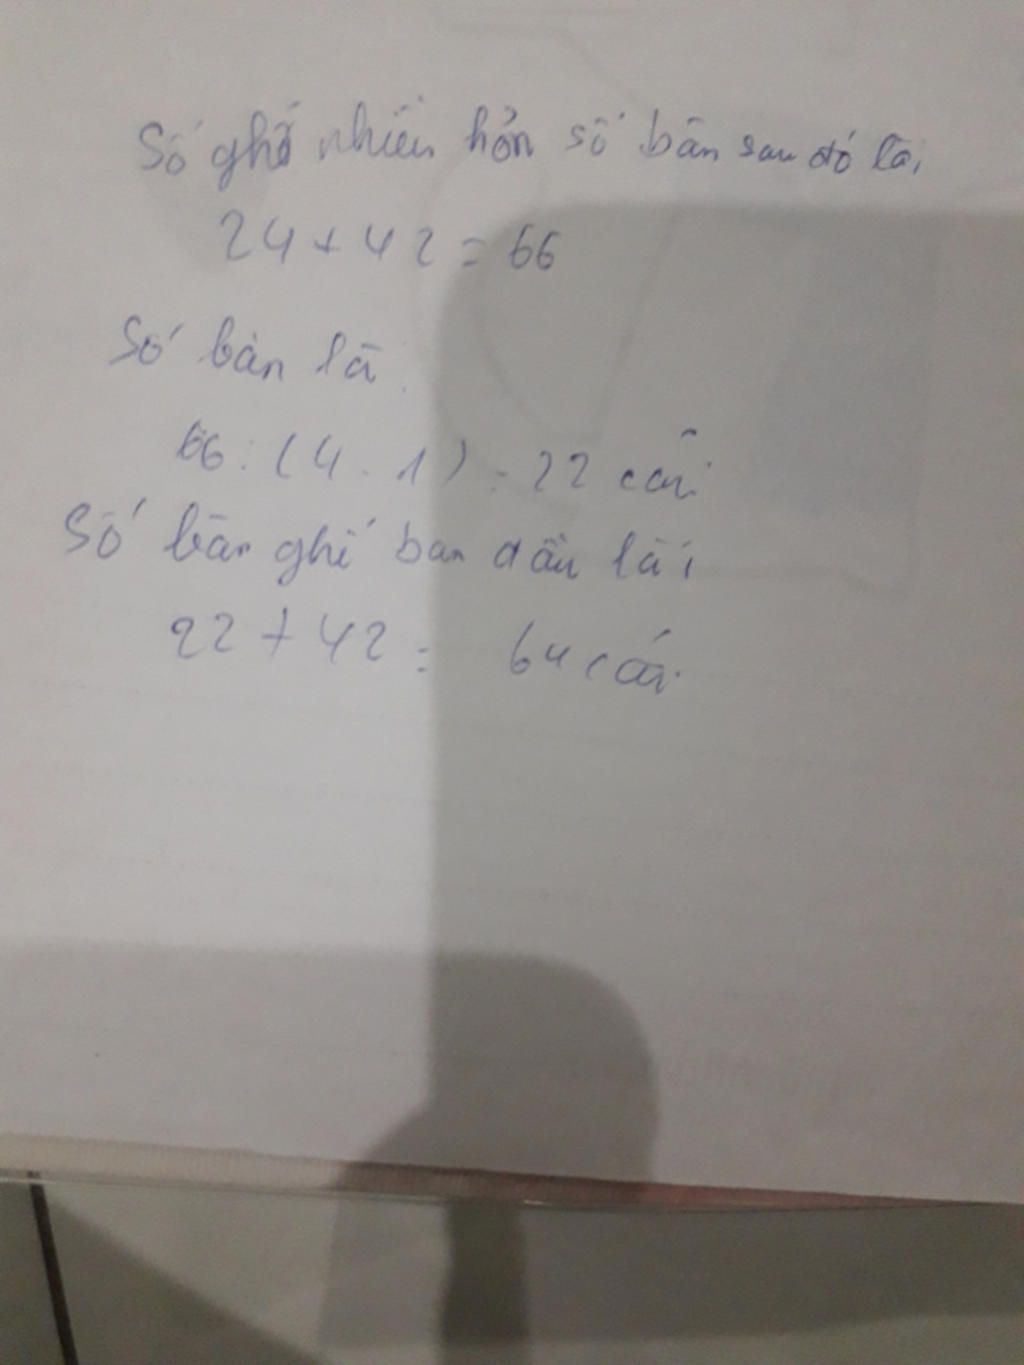 Số ghế nhiều hơn số bàn sau đó là:
24 + 42 = 66
Số bàn là:
66 : (4 - 1) = 22 cái
Số bàn ghế ban đầu là:
22 + 42 = 64 cái